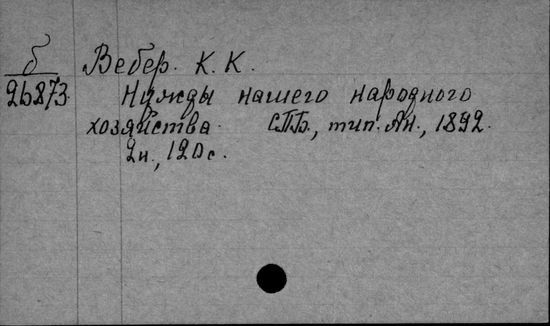 б Вебер. К. К.
26873. Нужды нашего народного
хозяйства. СПБ., тип. Ан., 1892.
2н., 120с.